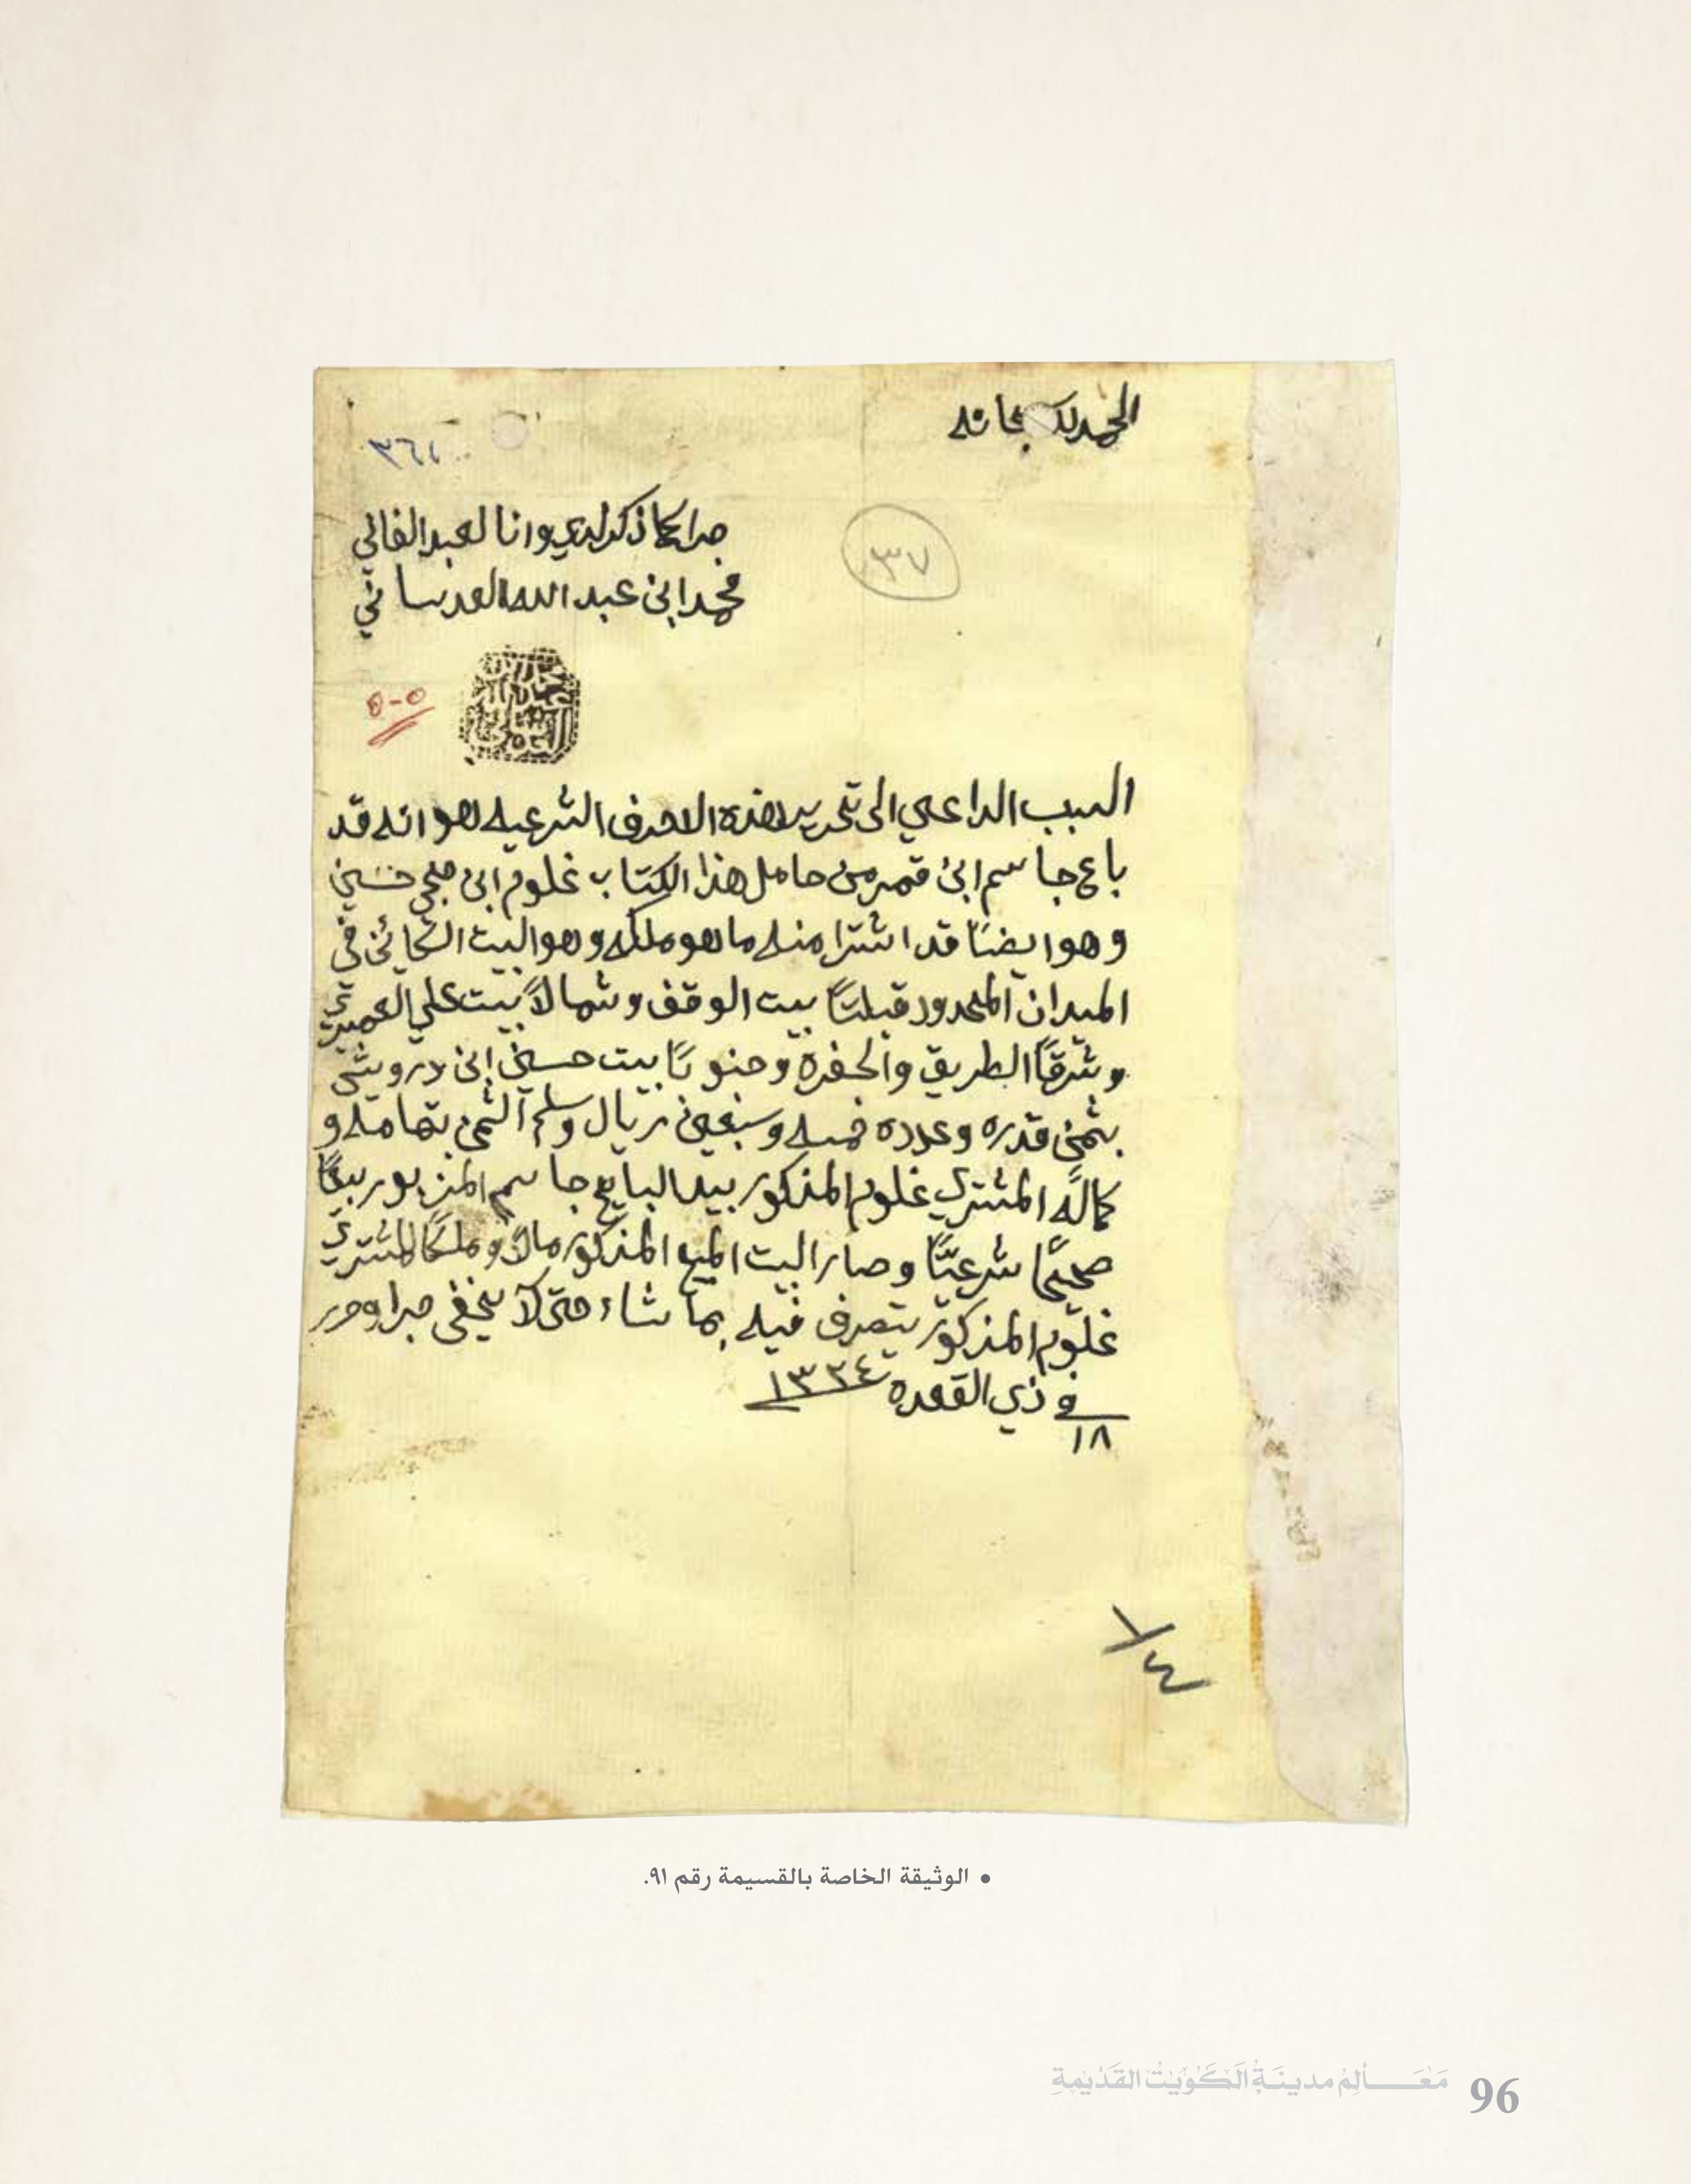 الحمد لله سبحانه
٣٦١
جرا كما ذكر لدي وانا العبد الفاني
محمد ابن عبد الله العدساني
٣٧
٥-٥
السبب الداعي الى تحرير هذه الاحرف الشرعيه هو انه قد
باع جاسم ابن قمبر من حامل هذا الكتاب غلوم ابن حجي حسين
وهو ايضاً قد اشترا منه ما هو ملكه وهو البيت الكائن في
الميدان المحدود قبلتاً بيت الوقف وشمالاً بيت علي العميري
وشرقاً الطريق والحفرة وجنوباً بيت حسين ابن درويش
بثمن قدره وعدده خمسه وسبعين ريال وسلم الثمن بتمامه و
كماله المشتري غلوم المذكور بيد البايع جاسم المزبور بيعاً
صحيحاً شرعيّاً وصار البيت المبيع المذكور مالاً وملكاً للمشتري
غلوم المذكور يتصرف فيه بما شاء حتى لا يخفى جرا وحرر
في ١٨ ذي القعدة ١٣٣٤
١/٤
• الوثيقة الخاصة بالقسيمة رقم ٩١.
مَعَـالِمُ مدينَةِ الكُوَيْتْ القَدْيمَةِ 96